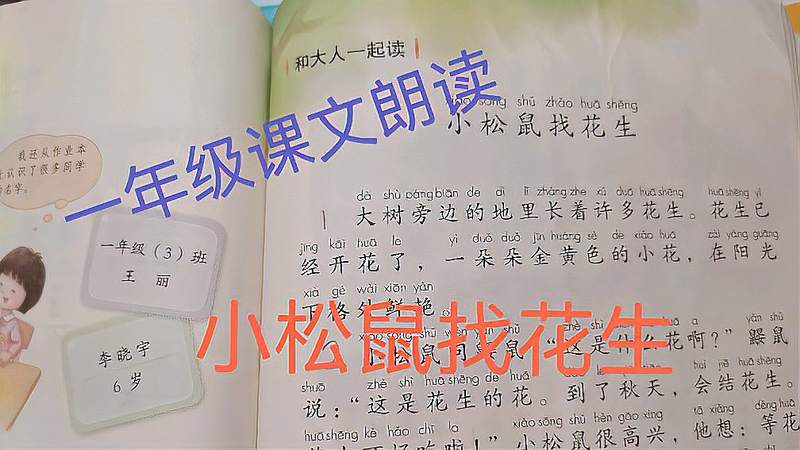 我还从作业本
认识了很多同学
名字。
一年级（3）班
王 丽
李晓宇
6岁
和大人一起读
一年级课文朗读
sōng shǔ zhǎo huā shēng
小松鼠找花生
dà shù páng biān de dì lǐ zhǎng zhe xǔ duō huā shēng huā shēng yǐ
大树旁边的地里长着许多花生。花生已
jīng kāi huā le yì duǒ duǒ jīn huáng sè de xiǎo huā zài yáng guāng
经开花了，一朵朵金黄色的小花，在阳光
xià gé wài xiān yàn
下格外鲜艳。
小松鼠找花生
小松鼠问鼹鼠：“这是什么花啊？”鼹鼠
shuō zhè shì huā shēng de huā huì jiē huā shēng
说：“这是花生的花。到了秋天，会结花生。
huā shēng kě hǎo chī la xiǎo sōng shǔ hěn gāo xìng tā xiǎng děng huā
小松鼠很高兴，他想：等花